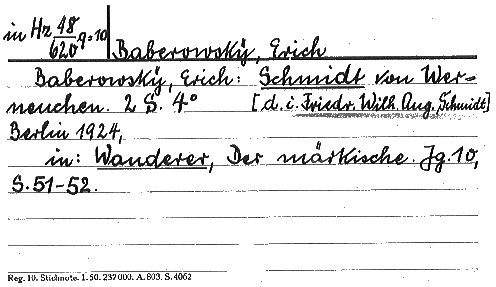 in Hz 48/620 q=10
Baberowsky, Erich
Baberowsky, Erich: Schmidt von Wer-
neuchen. 2 S. 4° [d. i. Friedr. Wilh. Aug. Schmidt]
Berlin 1924,
in: Wanderer, Der märkische. Jg. 10,
S. 51-52.
Reg. 10. Stichnote. 1. 50. 237000. A. 803. S. 4062